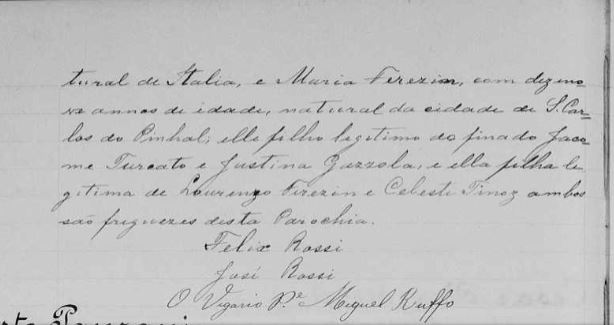 tural de Italia, e Maria Ferezin, com dezeno-
ve annos de idade, natural da cidade de S. Car-
los do Pinhal; elle filho legitimo do finado Jaco-
me Turcato e Justina Gazzola, e ella filha le-
gitima de Lourenzo Ferezin e Celeste Tinoz ambos
são freguezes desta Parochia.
Felix Rossi
José Rossi
O Vigario P.e Miguel Ruffo